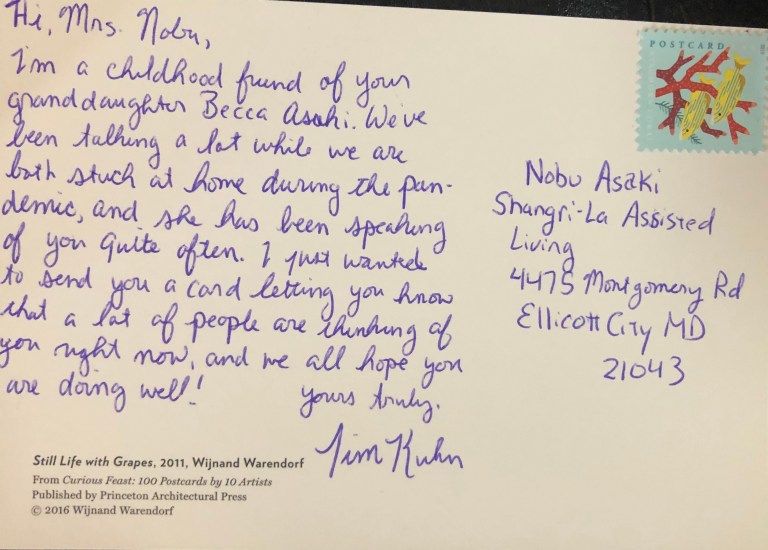 Hi, Mrs. Nobu,
I'm a childhood friend of your
granddaughter Becca Asaki. We've
been talking a lot while we are
both stuck at home during the pan-
demic, and she has been speaking
of you quite often. I just wanted
to send you a card letting you know
that a lot of people are thinking of
you right now, and we all hope you
are doing well!
yours truly,
Jim Kuhn
POSTCARD
Nobu Asaki
Shangri-La Assisted
Living
4475 Montgomery Rd
Ellicott City MD
21043
Still Life with Grapes, 2011, Wijnand Warendorf
From Curious Feast: 100 Postcards by 10 Artists
Published by Princeton Architectural Press
© 2016 Wijnand Warendorf